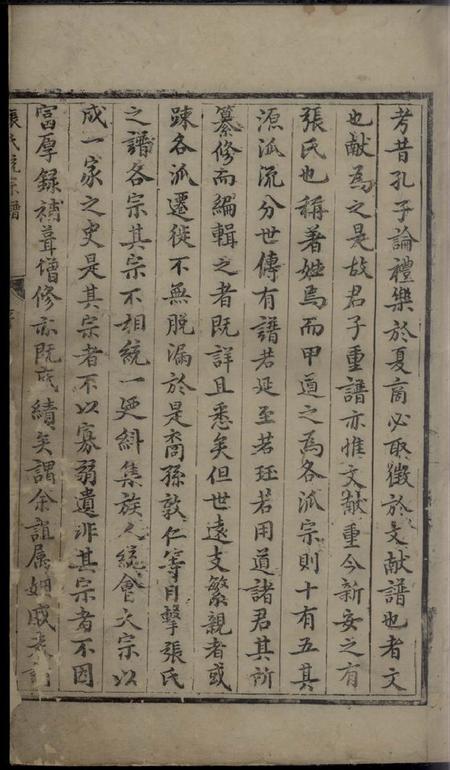 考昔孔子論禮樂於夏商必取徵於文献譜也者文
也献為之是故君子重譜亦惟文献重今新安之有
張氏也稱著姓焉而甲道之為各派宗則十有五其
源派流分世傳有譜若延至若珏若用道諸君其所
纂修而編輯之者既詳且悉矣但世遠支繁親者或
踈各派遷徙不無脫漏於是裔孫敦仁等目擊張氏
之譜各宗其宗不相統一爰紏集族人統會大宗以
成一家之史是其宗者不以寡弱遺非其宗者不因
富厚録補葺增修亦既成績矣謂余誼属姻戚來
張氏統宗譜